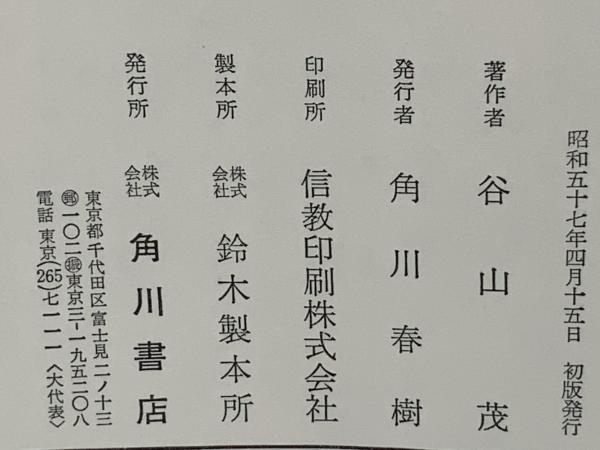 昭和五十七年四月十五日 初版発行
著作者 谷山茂
発行者 角川春樹
印刷所 信教印刷株式会社
製本所 株式会社 鈴木製本所
発行所 株式会社 角川書店
東京都千代田区富士見二ノ十三
㊞一〇二 振東京三-一九五二〇八
電話 東京(265)七一一一〈大代表〉